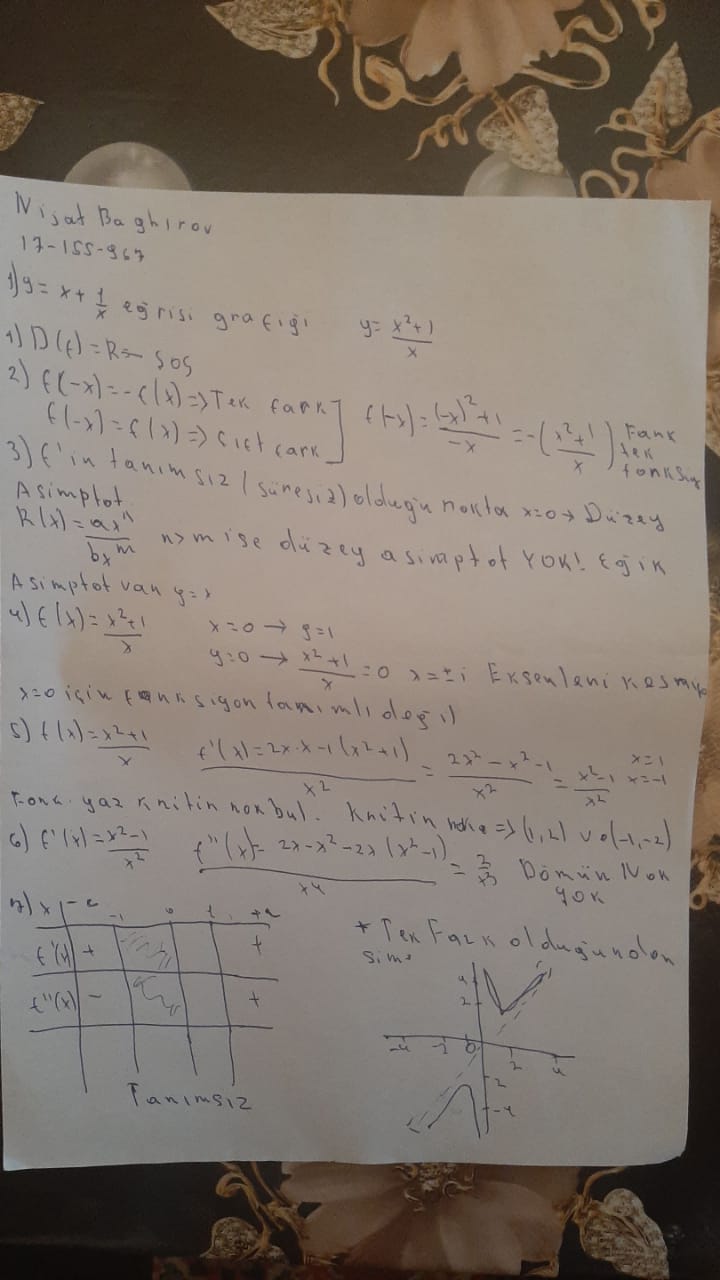 Nijat Baghırov
17-155-967
1) y= x+ 1/x eğrisi grafiği y= x²+1/x
1) D(f)=R- {0}
2) f(-x)=-f(x)=>Tek fonk] f(-x)= (-x)²+1/-x = -(x²+1/x) Fonk tek fonksiy
f(-x)=f(x)=> Çift fonk]
3) f'in tanımsız (süresiz) olduğu nokta x=0 → Düzey
Asimptot
R(x)= axⁿ/bxᵐ n>m ise düzey asimptot YOK! Eğik
Asimptot var y=x
4) f(x)= x²+1/x x=0 → y=1
y=0 → x²+1/x =0 x=±i Eksenleri kesmiyo
x=0 için fonksiyon tanımlı değil
5) f(x)= x²+1/x f'(x)= 2x·x-1(x²+1)/x² = 2x²-x²-1/x² = x²-1/x² x=1 x=-1
Fonk. yaz kritin nok bul. Kritin nokta => (1,2) ve (-1,-2)
6) f'(x)= x²-1/x² f''(x)= 2x-x²-2x(x²-1)/x4 = 2/x³ Dömün Nok
yok
7) x -∞ -1 0 1 +∞
f'(x) + +
f''(x) - +
Tanımsız
* Tek Fonk olduğundan
sime
4
2
-4 -2 0 2 4
-2
-4